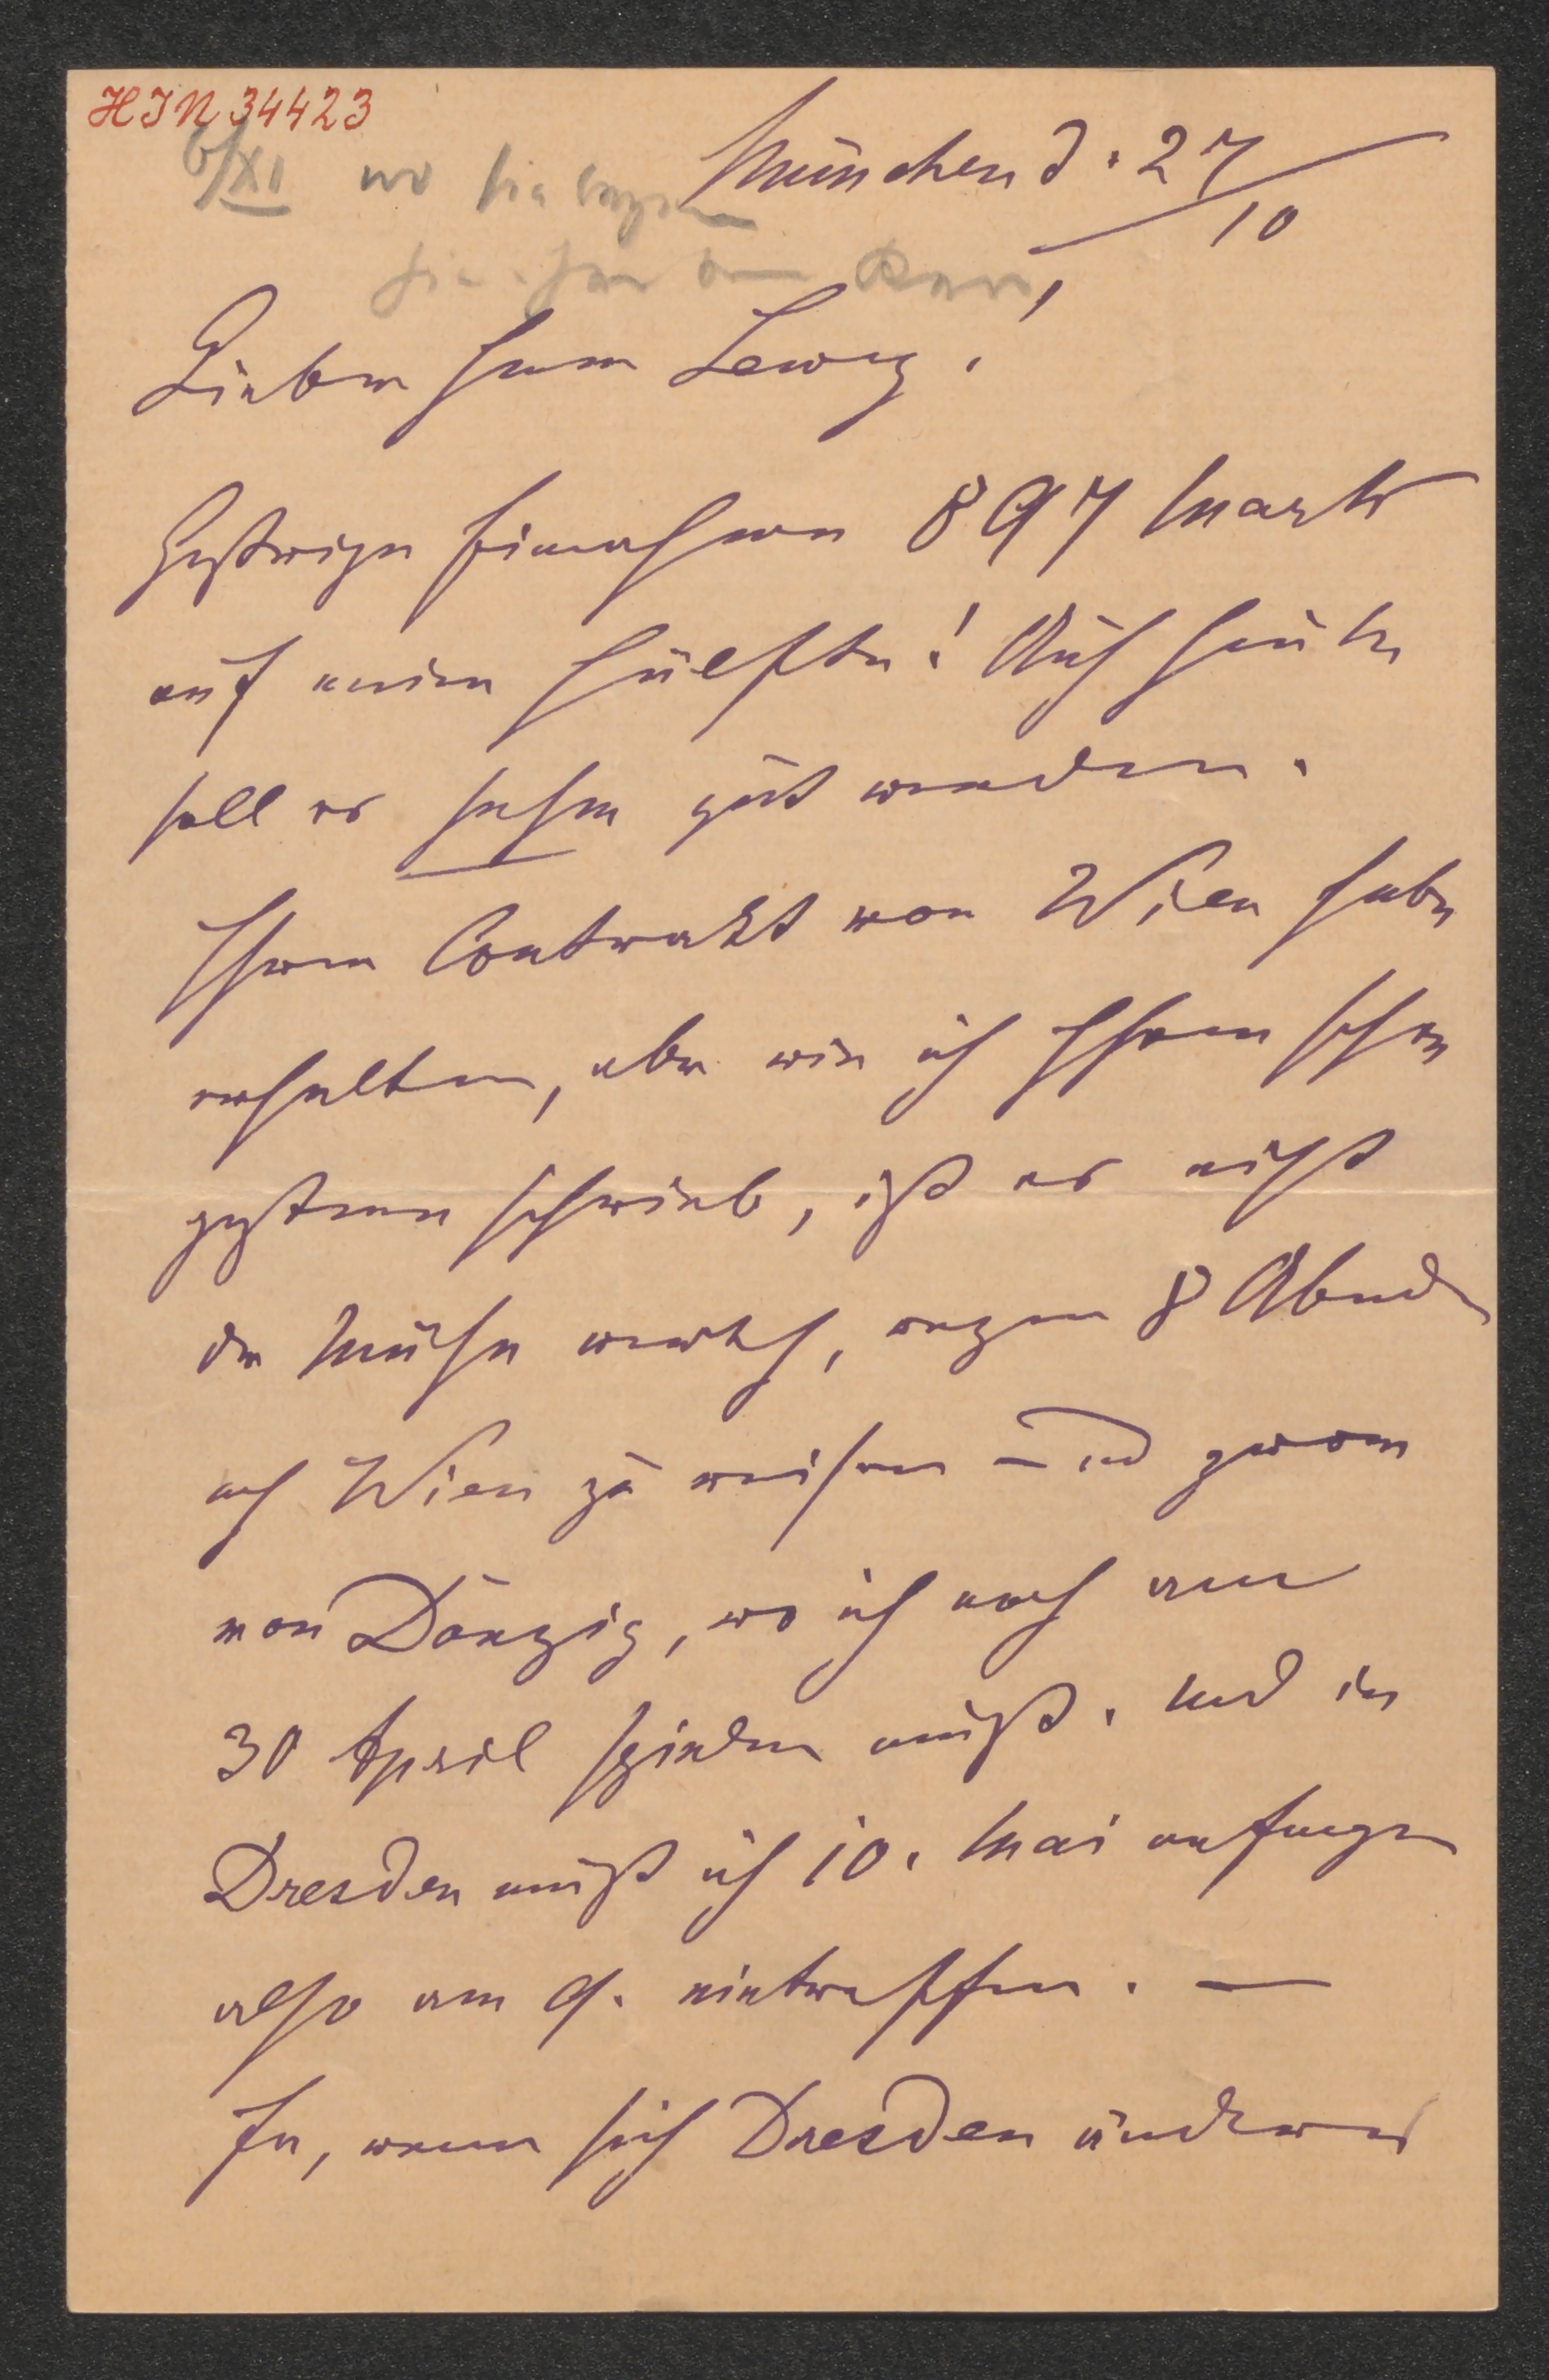 HIN 34423
6/XI wo Sie
München d. 27/10
Lieber Herr Lewy!
Gestrige Einnahme 897 Mark
auf meine Hälfte! Auch heute
soll es sehr gut werden.
Ihren Contrakt von Wien habe
erhalten, aber wie ich Ihnen schon
gestern schrieb, ist es nicht
der Mühe werth, wegen 8 Abende
nach Wien zu reisen und zwar
von Danzig, wo ich noch am
30 April spielen muß. Und in
Dresden muß ich 10. Mai anfangen
also am 9. eintreffen. —
Ja, wenn sich Dresden anders